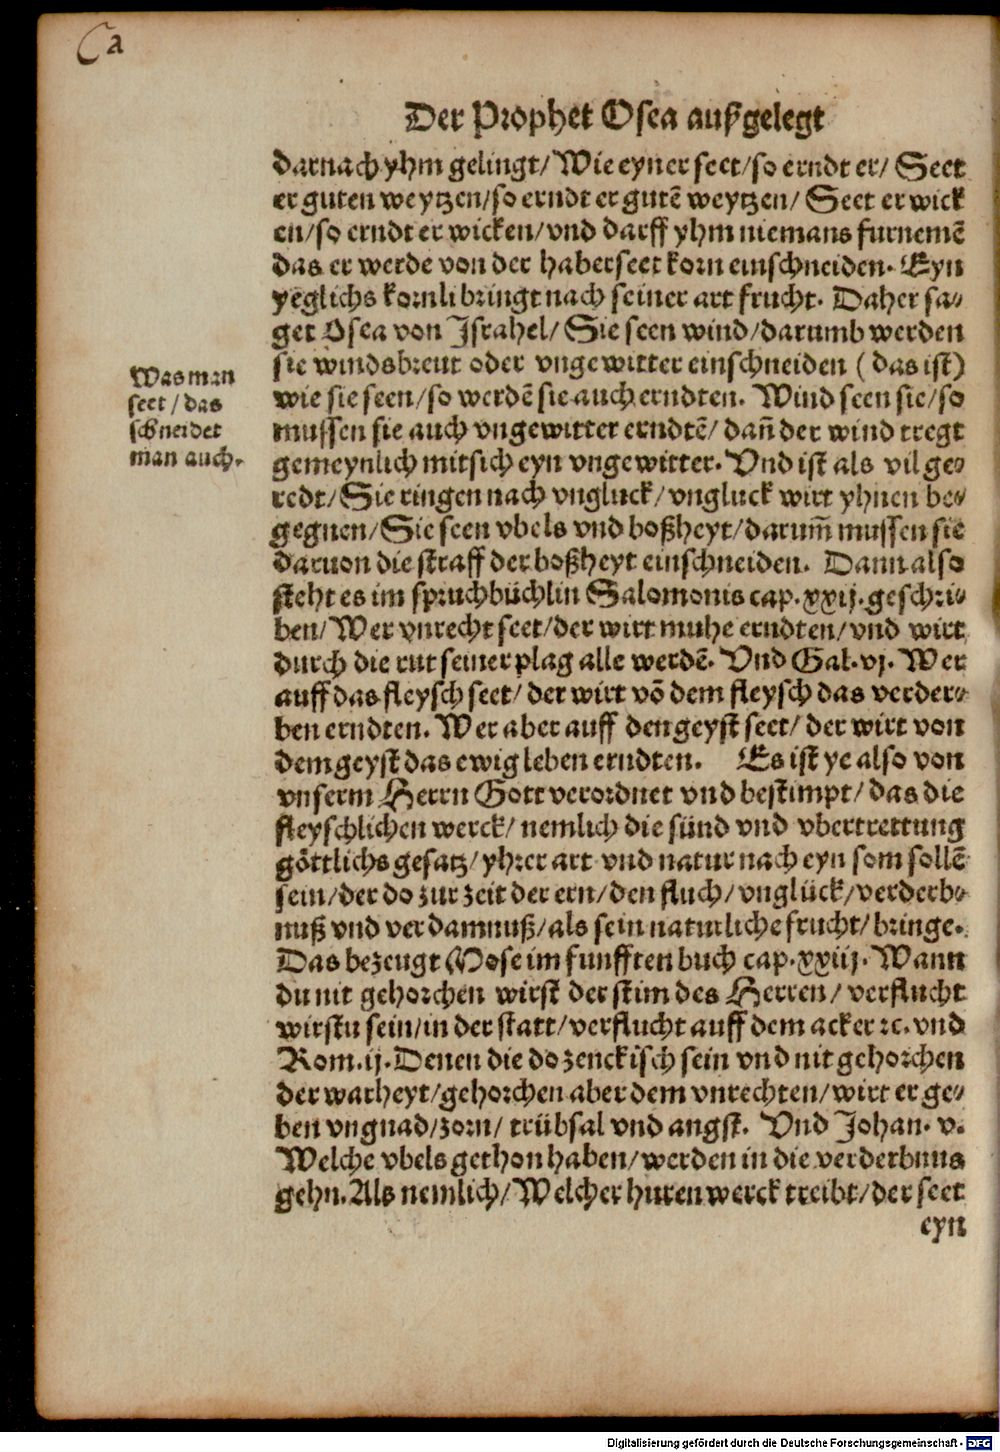 Der Prophet Osea außgelegt
darnach yhm gelingt/ Wie eyner seet/so erndt er/ Seet
er guten weytzen/so erndt er gutē weytzen/ Seet er wick
en/so erndt er wicken/vnd darff yhm niemans furnemē
das er werde von der haberseet korn einschneiden. Eyn
yeglichs kornli bringt nach seiner art frucht. Daher sa⸗
get Osea von Israhel/ Sie seen wind/darumb werden
sie windsbreut oder vngewitter einschneiden (das ist)
wie sie seen/so werdē sie auch erndten. Wind seen sie/so
mussen sie auch vngewitter erndtē/ dañ der wind tregt
gemeynlich mitsich eyn vngewitter. Vnd ist als vil ge⸗
redt/ Sie ringen nach vngluck/ vngluck wirt yhnen be⸗
gegnen/ Sie seen vbels vnd boßheyt/darum̃ mussen sie
daruon die straff der boßheyt einschneiden. Dann also
steht es im spruchbüchlin Salomonis cap.xxij.geschri⸗
ben/ Wer vnrecht seet/der wirt muhe erndten/vnd wirt
durch die rut seiner plag alle werdē. Vnd Gal.vj. Wer
auff das fleysch seet/ der wirt vō dem fleysch das verder⸗
ben erndten. Wer aber auff den geyst seet/ der wirt von
dem geyst das ewig leben erndten. Es ist ye also von
vnserm Herrn Gott verordnet vnd bestimpt/ das die
fleyschlichen werck/ nemlich die sünd vnd vbertrettung
göttlichs gesatz/ yhrer art vnd natur nach eyn som sollē
sein/der do zur zeit der ern/den fluch/vnglück/verderb⸗
nuß vnd verdamnuß/als sein naturliche frucht/bringe.
Das bezeugt Mose im funfften buch cap.xxiij. Wann
du nit gehorchen wirst der stim des Herren/ verflucht
wirstu sein/in der statt/verflucht auff dem acker ꝛc. vnd
Rom.ij. Denen die do zenckisch sein vnd nit gehorchen
der warheyt/gehorchen aber dem vnrechten/wirt er ge⸗
ben vngnad/zorn/ trübsal vnd angst. Vnd Johan. v.
Welche vbels gethon haben/werden in die verderbnus
gehn. Als nemlich/ Welcher huren werck treibt/der seet
eyn
Was man
seet / das
schneidet
man auch.
Digitalisierung gefördert durch die Deutsche Forschungsgemeinschaft - DFG